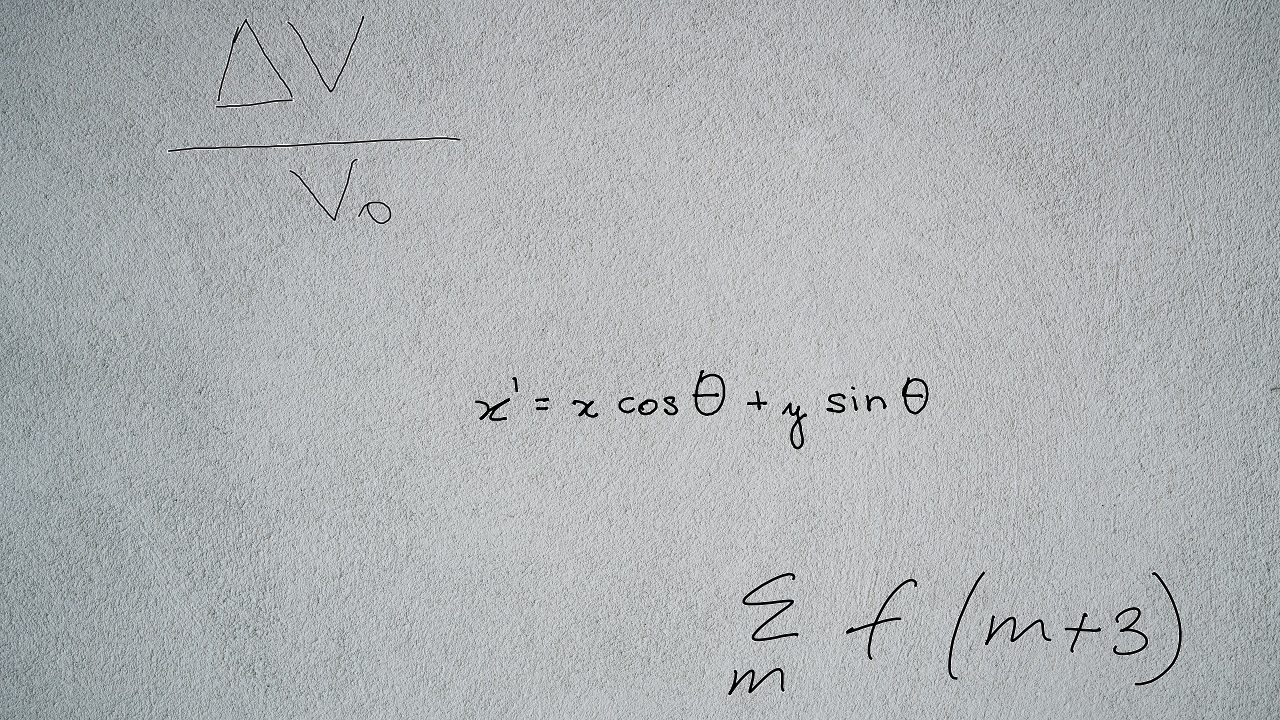 \frac{\Delta V}{V_0}
x' = x cos θ + y sin θ
\sum_m f(m+3)